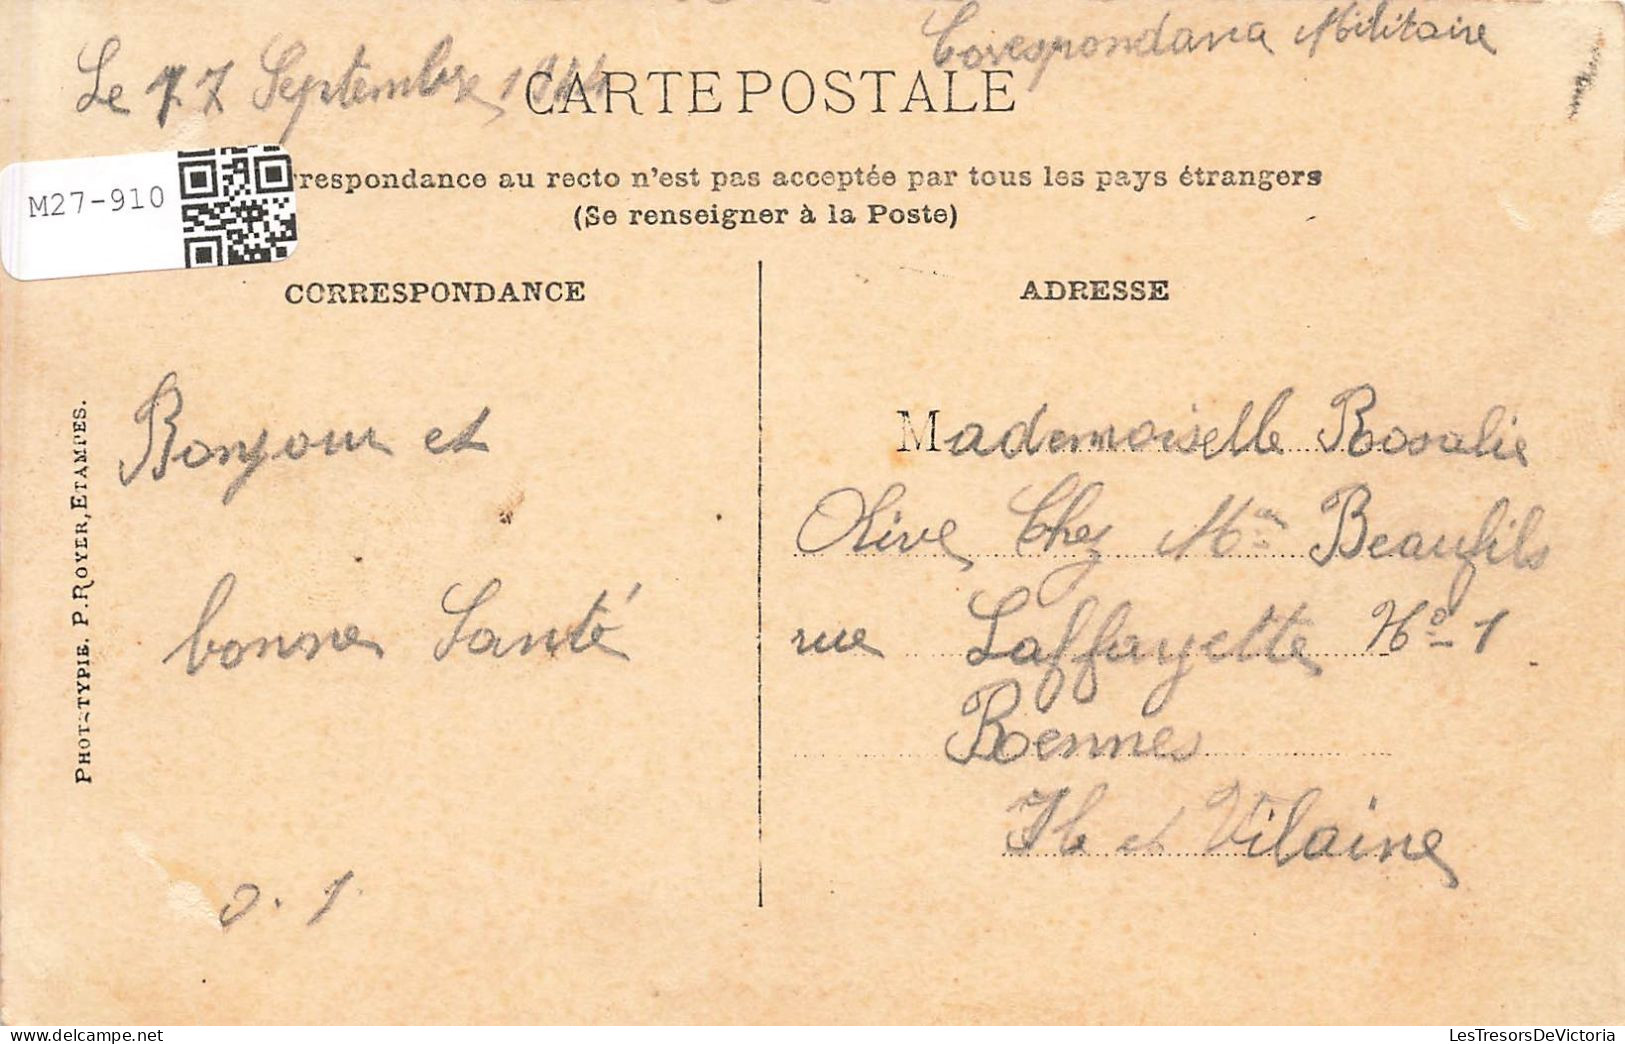 Correspondance Militaire
Le 17 Septembre 1914
CARTE POSTALE
M27-910
rrespondance au recto n'est pas acceptée par tous les pays étrangers
(Se renseigner à la Poste)
CORRESPONDANCE
ADRESSE
Bonjour et
bonne Santé
PHOTOTYPIE. P. ROYER, ETAMPES.
Mademoiselle Rosalie
Olive Chez Mme Beaufils
rue Laffayette No 1
Rennes
Ile et Vilaine
LesTresorsDeVictoria